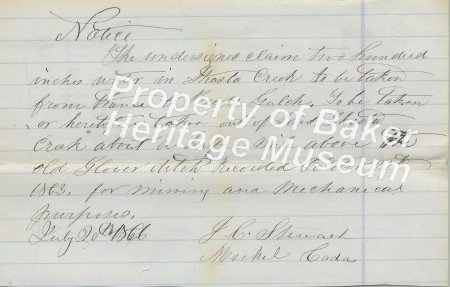 Notice
The undersigned claim two hundred
inches water in Shasta Creek to be taken
from Gulch. To be taken
or taken out of
Creek about above the
old Glover ditch recorded
1863. for mining and Mechanical
purposes.
July 20th 1866 J. C. Stewart
Michel Coda
Property of Baker
Heritage Museum